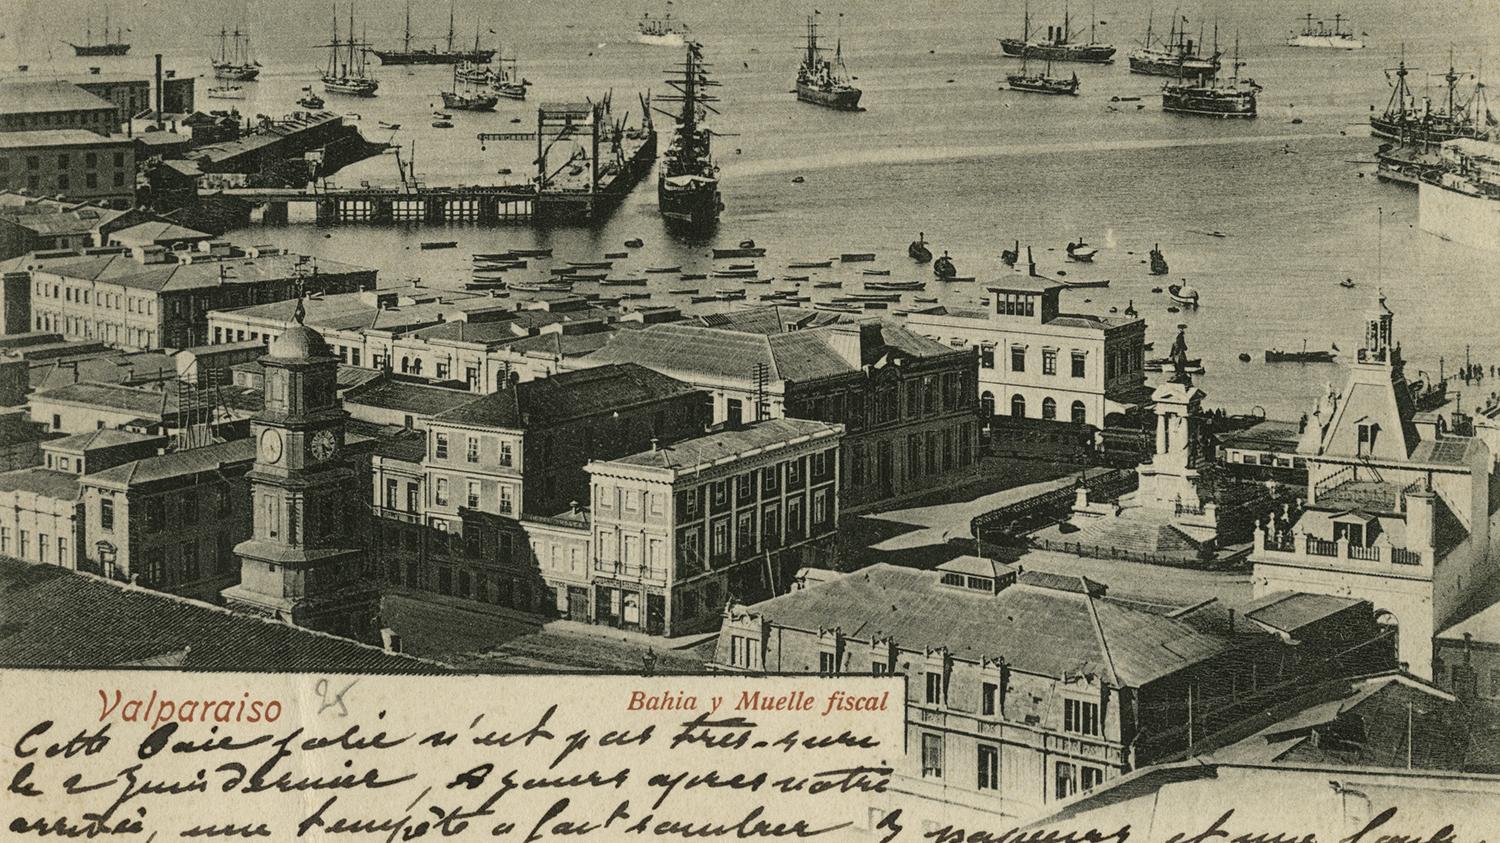 Valparaiso 25 Bahia y Muelle fiscal
Cette Baie jolie n'est pas très-sure
le 2 Juin dernier, 2 jours après notre
arrivée, une tempête a fait sombrer 3 vapeurs et une